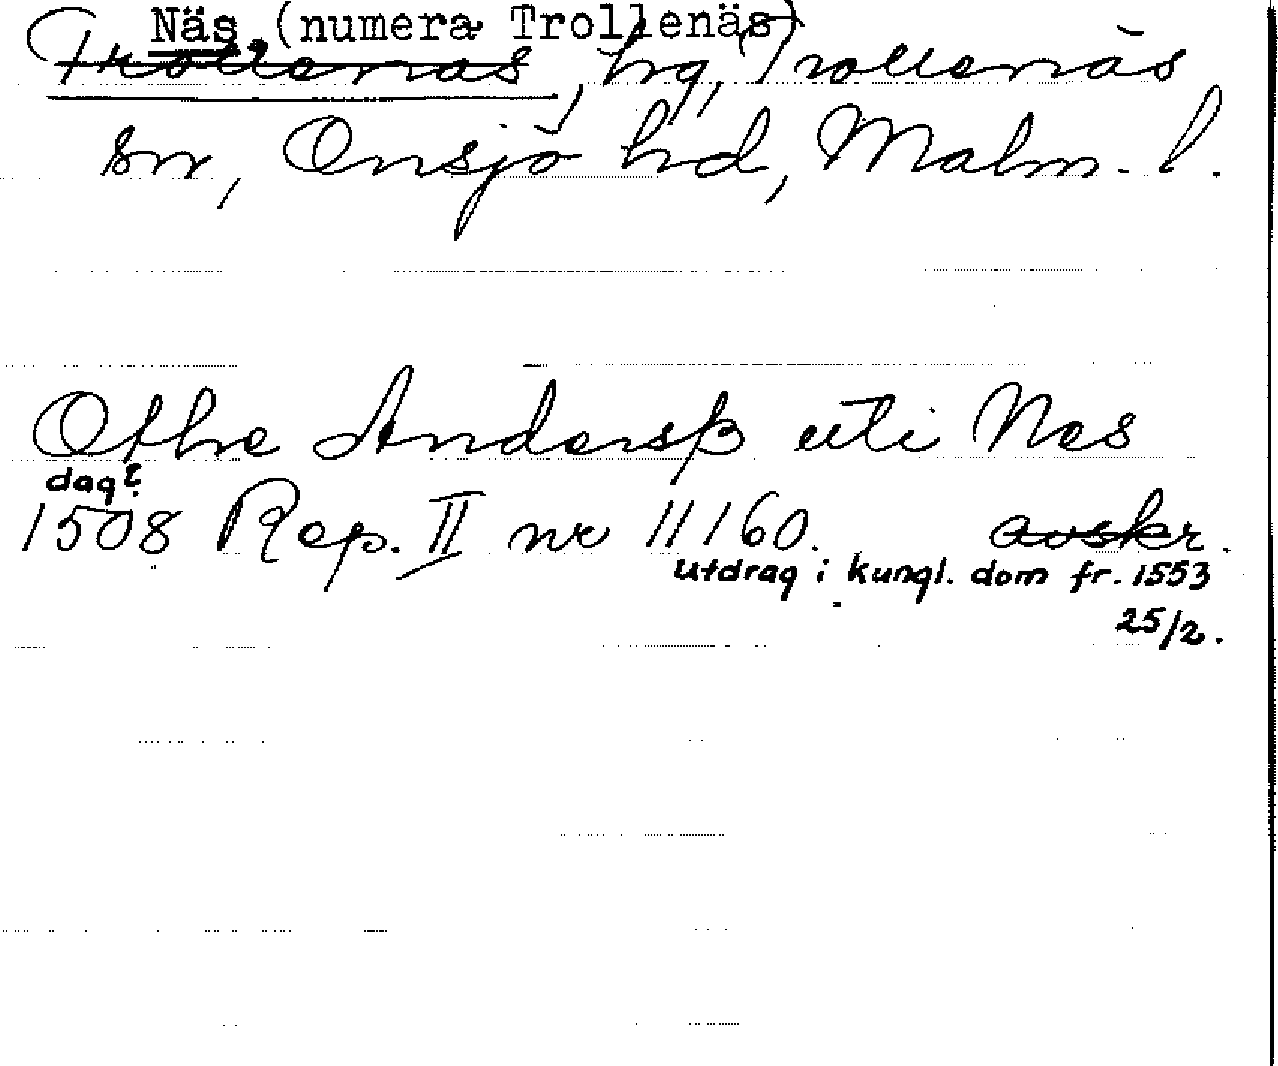 Näs, (numera Trollenäs)
Trollenäs, hg, Trollenäs
sn, Onsjö hd, Malm. l.
Othe Andersß uti Nes
dag?
1508 Rep. II nr 11160. avskr.
utdrag i kungl. dom fr. 1553
25/2.